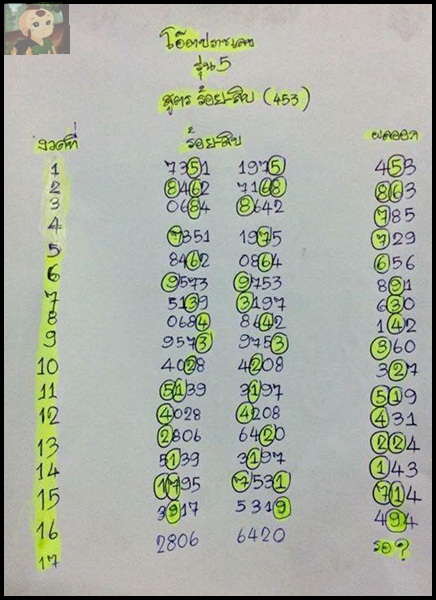 โอ๊ตปราชเลข
รุ่น 5
สูตร ร้อย-สิบ (453)
งวดที่ ร้อย-สิบ ผลออก
1 7351 1975 453
2 8462 7168 863
3 0684 8642 785
4 7351 1975 729
5 8462 0864 656
6 9573 9753 891
7 5139 3197 630
8 0684 8642 142
9 9573 9753 360
10 4028 4208 327
11 5139 3197 519
12 4028 4208 431
13 2806 6420 224
14 5139 3197 143
15 1795 7531 714
16 3917 5319 494
17 2806 6420 รอ ?